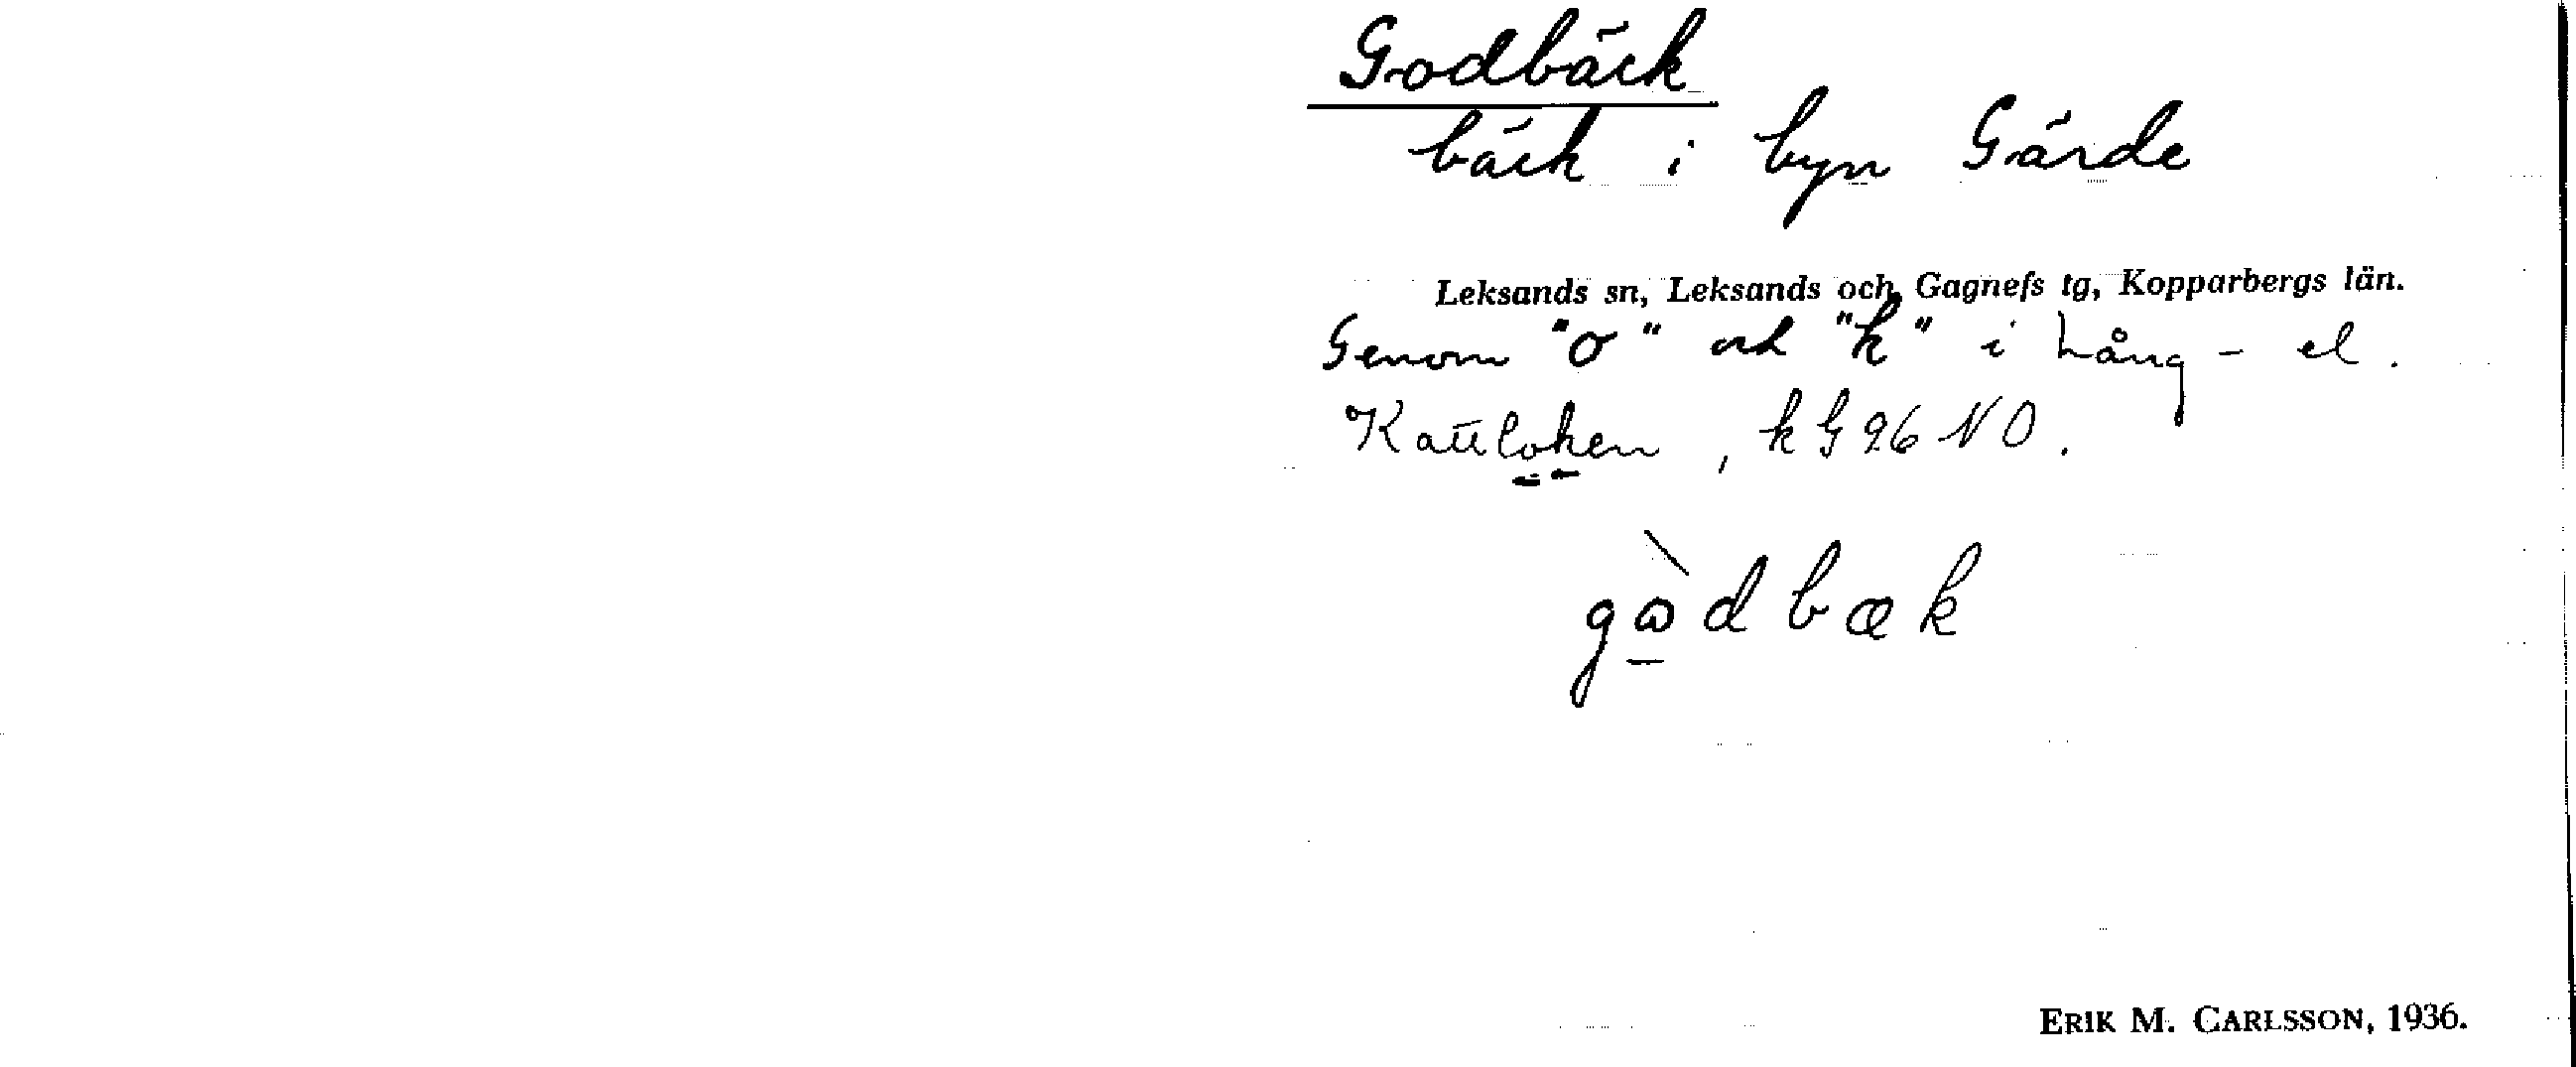 Godbäck
bäck i byn Gärde
Leksands sn, Leksands och Gagnefs tg, Kopparbergs län.
Genom "o" och "k" i Lång- el.
Kattloken, kG 96 NO.
gɷ̀dbæk
ERIK M. CARLSSON, 1936.